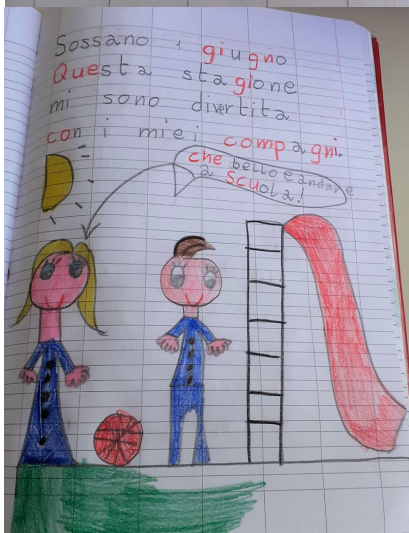 Sossano 1 giugno
Questa stagione
mi sono divertita
con i miei compagni.
che bello è andare
a scuola!